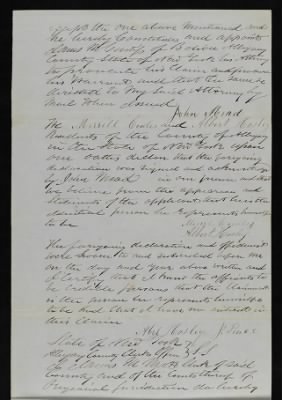 except the one above mentioned and
he hereby Constitutes and appoints
James M. of Bolivar Allegany
County State of New York his Attorney
to prosecute his Claim and procure
his Warrant and that the same be
directed to My Said Attorney by
Mail When issued
John Mead
We Merrill Cooley and Albert Cooley
Residents of the County of Allegany
in the State of New York upon
our oaths declare that the foregoing
declaration was signed and acknowledged
by John Mead in our presence and that
we believe from the appearance and
Statements of the applicant that he is the
identical person he represents himself
to be
Cooley
Albert Cooley
The foregoing declaration and affidavit
were sworn to and subscribed before me
on the day and year above written and
I certify that I know the affiants to
be Credible persons that the Claimant
is the person he represents himself
to be and that I have no interest in
this Claim
Justice
State of New York
Allegany County Clerks Office SS
I Clerk of said
County and of the Courts thereof
Original jurisdiction do hereby